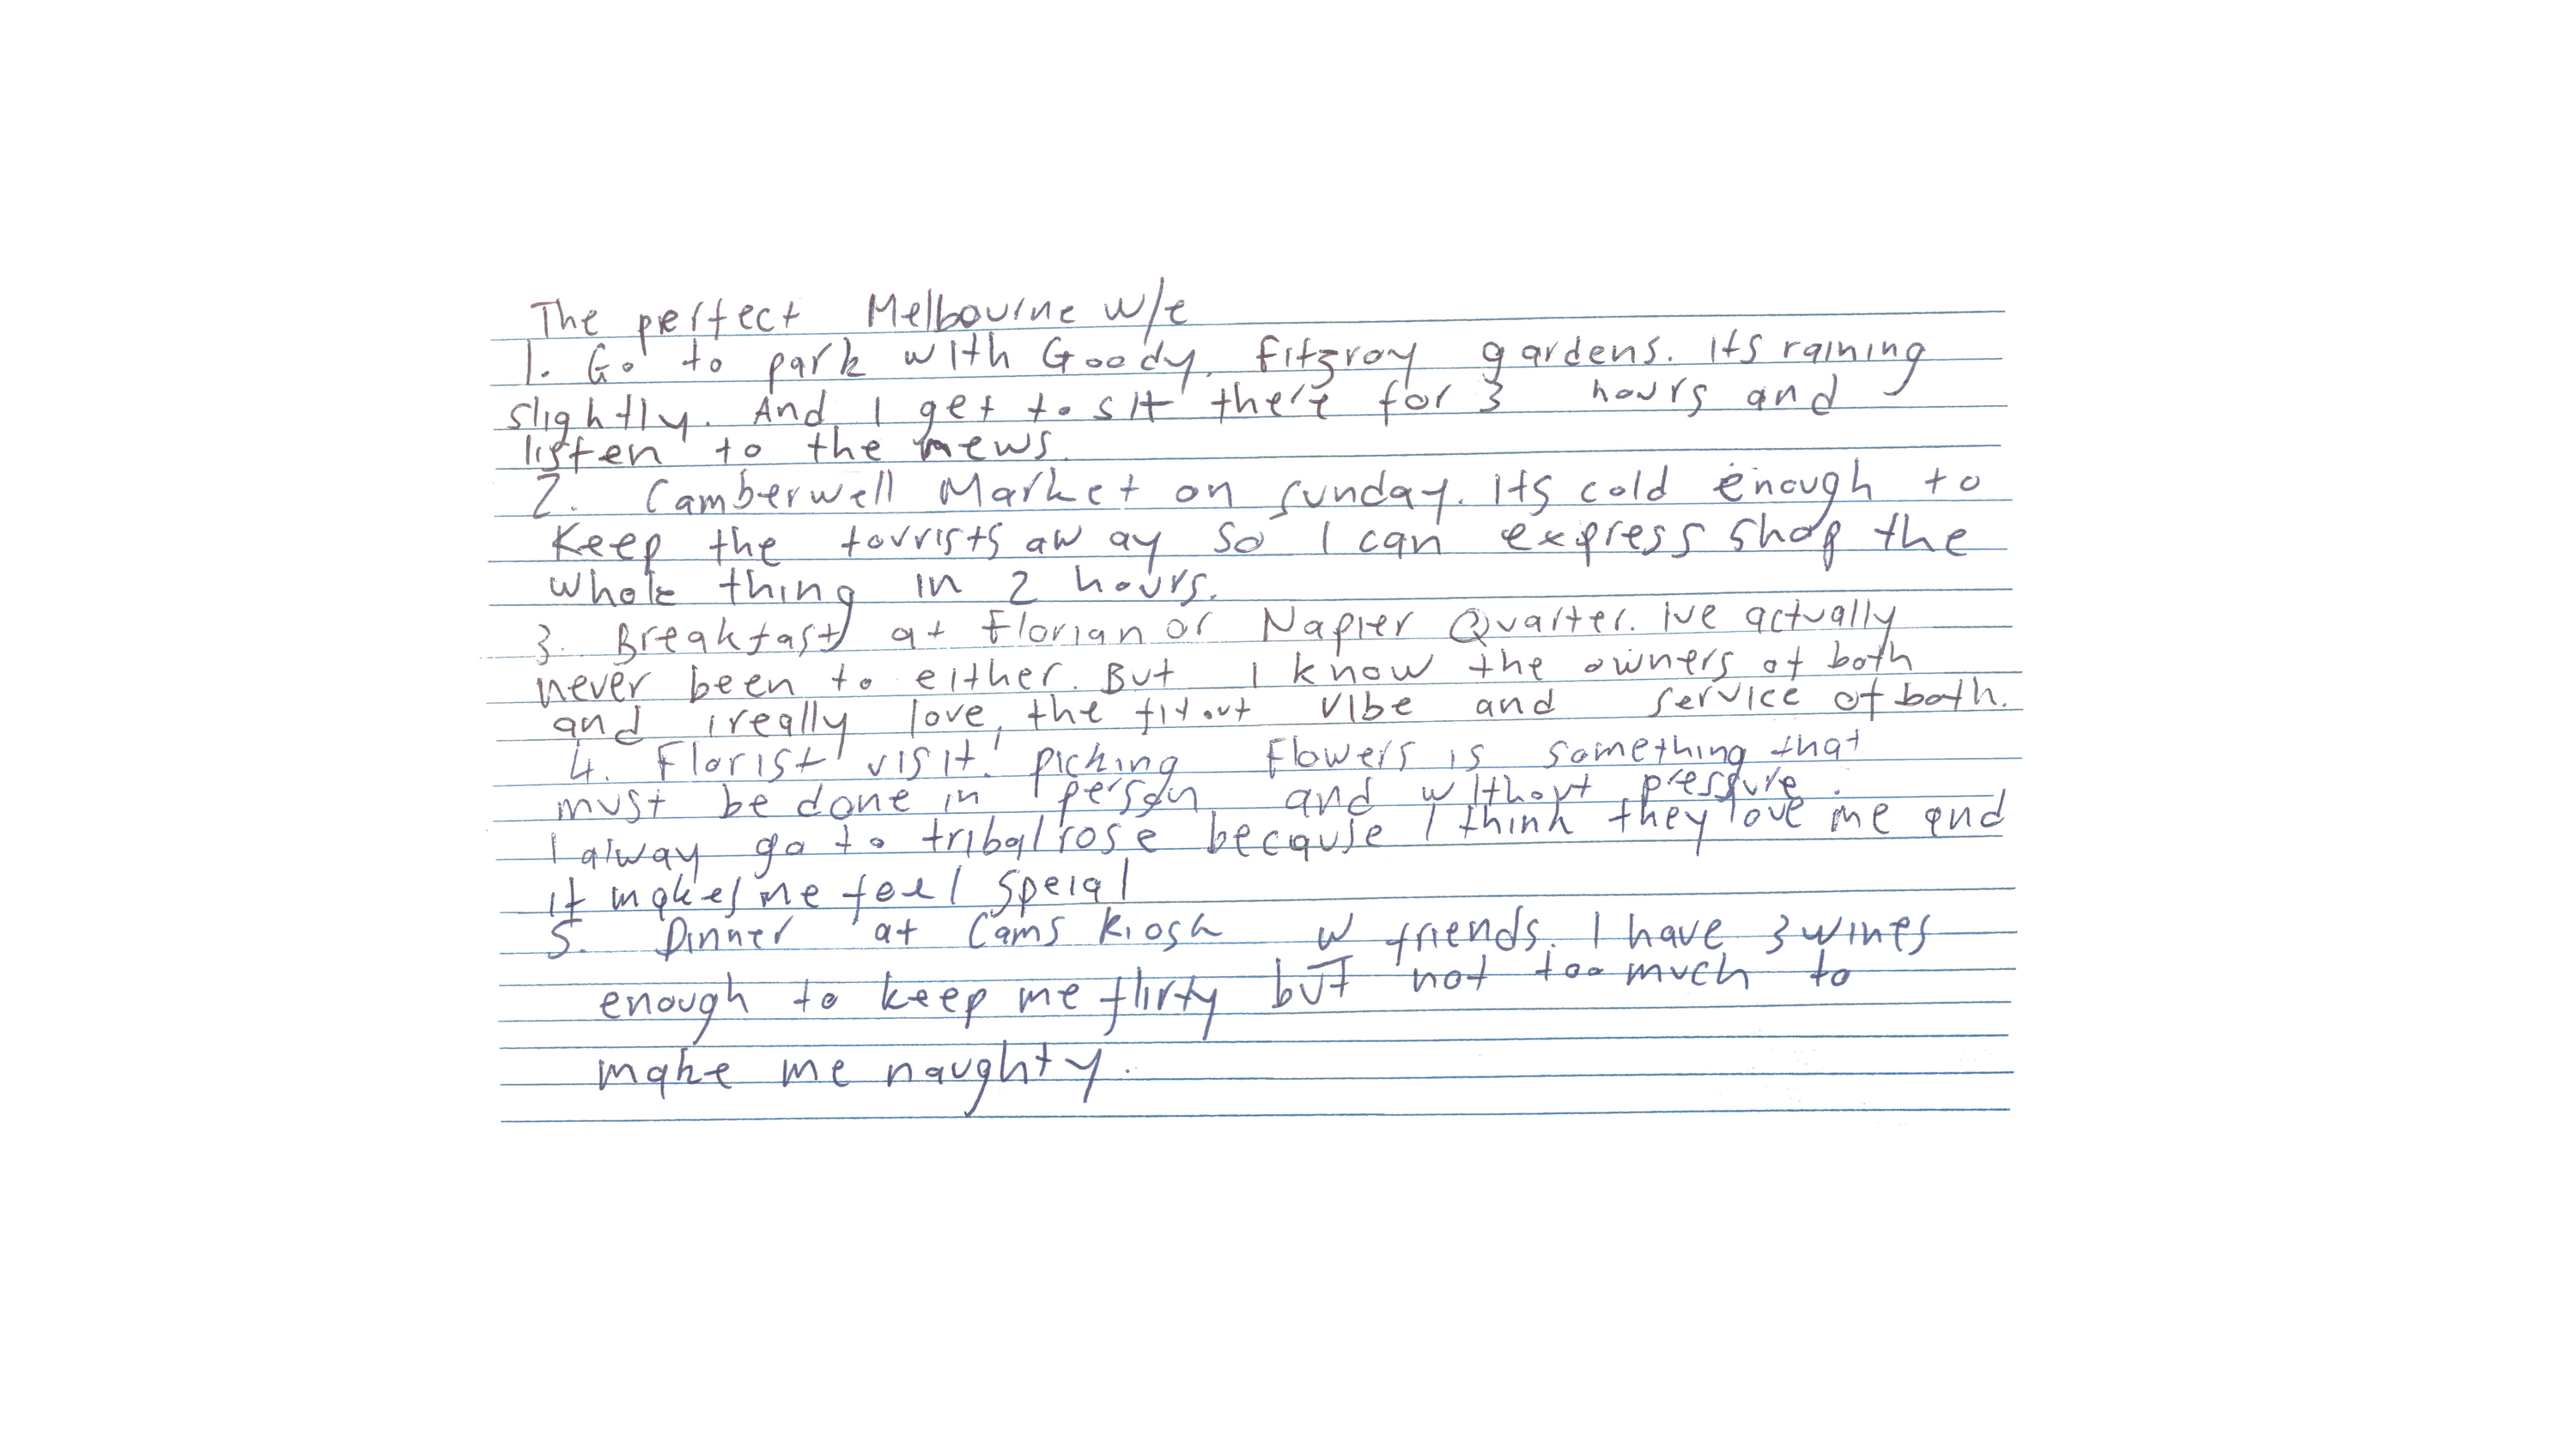 The perfect Melbourne w/e
1. Go to park with Goody. Fitzroy gardens. Its raining
slightly. And I get to sit there for 3 hours and
listen to the news.
2. Camberwell Market on Sunday. Its cold enough to
Keep the tourists away so I can express shop the
whole thing in 2 hours.
3. Breakfast at Florian or Napier Quarter. Ive actually
never been to either. But I know the owners of both
and i really love, the fitout vibe and service of both.
4. Florist visit. picking Flowers is something that
must be done in person and without pressure.
I alway go to tribal rose because I think they love me and
it makes me feel Speial
5. Dinner at Cams Kiosk w friends. I have 3 wines
enough to keep me flirty but not too much to
make me naughty.